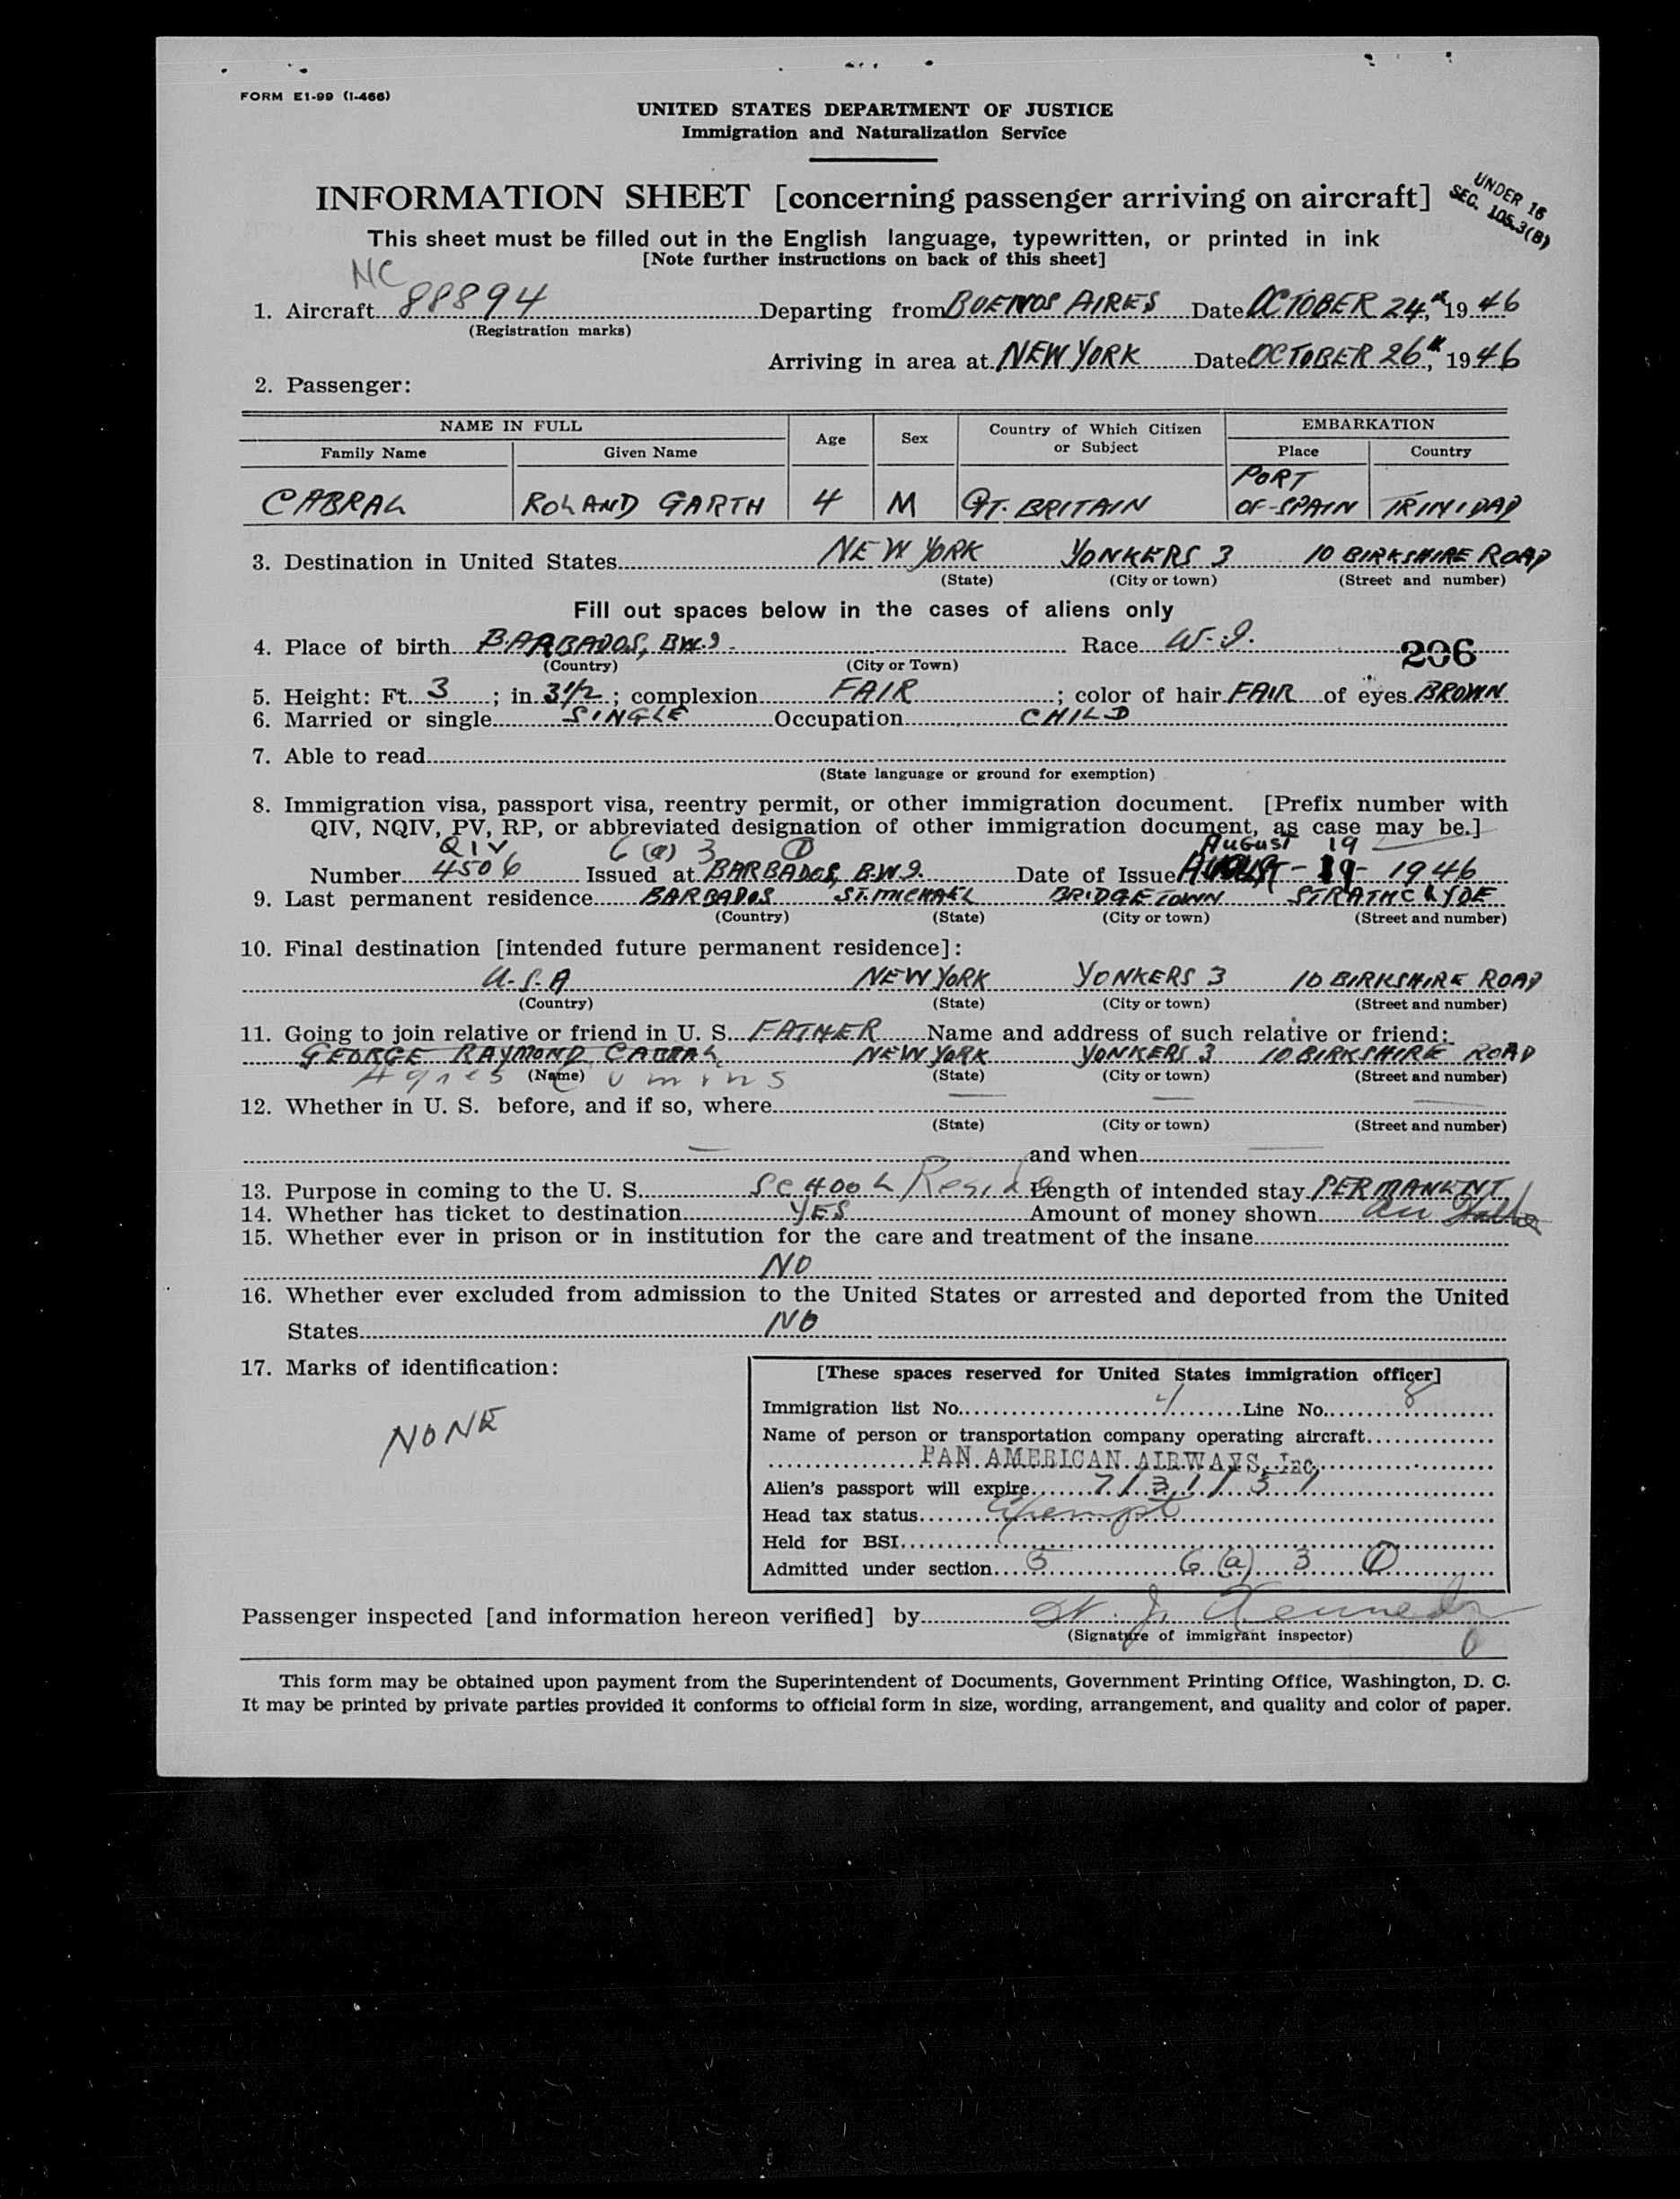 FORM E1-99 (I-466)
UNITED STATES DEPARTMENT OF JUSTICE
Immigration and Naturalization Service
INFORMATION SHEET [concerning passenger arriving on aircraft]
UNDER 16
SEC. 105.3(B)
This sheet must be filled out in the English language, typewritten, or printed in ink
[Note further instructions on back of this sheet]
NC
1. Aircraft 88894 Departing from BUENOS AIRES Date OCTOBER 24, 1946
(Registration marks)
Arriving in area at NEW YORK Date OCTOBER 26, 1946
2. Passenger:
NAME IN FULL Age Sex Country of Which Citizen or Subject EMBARKATION
Family Name Given Name Place Country
CABRAL ROLAND GARTH 4 M GT. BRITAIN PORT OF-SPAIN TRINIDAD
3. Destination in United States NEW YORK YONKERS 3 10 BIRKSHIRE ROAD
(State) (City or town) (Street and number)
Fill out spaces below in the cases of aliens only
4. Place of birth BARBADOS, B.W.I. Race W.I. 206
(Country) (City or Town)
5. Height: Ft. 3; in 3 1/2; complexion FAIR; color of hair FAIR of eyes BROWN
6. Married or single SINGLE Occupation CHILD
7. Able to read
(State language or ground for exemption)
8. Immigration visa, passport visa, reentry permit, or other immigration document. [Prefix number with
QIV, NQIV, PV, RP, or abbreviated designation of other immigration document, as case may be.]
QIV 6 (a) 3 (1) AUGUST 19
Number 4506 Issued at BARBADOS, B.W.I. Date of Issue AUGUST-19-1946
9. Last permanent residence BARBADOS ST. MICHAEL BRIDGETOWN STRATHCLYDE
(Country) (State) (City or town) (Street and number)
10. Final destination [intended future permanent residence]:
U.S.A NEW YORK YONKERS 3 10 BIRKSHIRE ROAD
(Country) (State) (City or town) (Street and number)
11. Going to join relative or friend in U. S. FATHER Name and address of such relative or friend:
GEORGE RAYMOND CABRAL NEW YORK YONKERS 3 10 BIRKSHIRE ROAD
Agnes (Name) (State) (City or town) (Street and number)
12. Whether in U. S. before, and if so, where
(State) (City or town) (Street and number)
and when
13. Purpose in coming to the U. S. SCHOOL Reside Length of intended stay PERMANENT
14. Whether has ticket to destination YES Amount of money shown
15. Whether ever in prison or in institution for the care and treatment of the insane
NO
16. Whether ever excluded from admission to the United States or arrested and deported from the United
States NO
17. Marks of identification:
NONE
[These spaces reserved for United States immigration officer]
Immigration list No. 4 Line No. 8
Name of person or transportation company operating aircraft
PAN AMERICAN AIRWAYS, Inc.
Alien's passport will expire 7/31/51
Head tax status Exempt
Held for BSI
Admitted under section 5 6 (a) 3 (1)
Passenger inspected [and information hereon verified] by J. Kennedy
(Signature of immigrant inspector)
This form may be obtained upon payment from the Superintendent of Documents, Government Printing Office, Washington, D. C.
It may be printed by private parties provided it conforms to official form in size, wording, arrangement, and quality and color of paper.